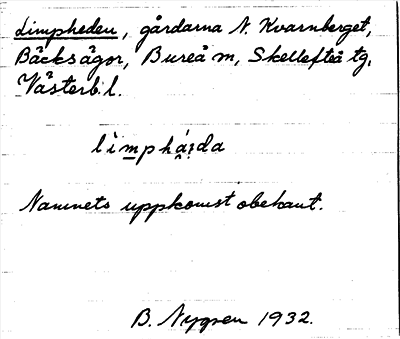 Limpheden, gårdarna N. Kvarnberget,
Bäcksågor, Bureå m, Skellefteå tg,
Västerb. l.
lìmphá̭i̭da
Namnets uppkomst obekant.
B. Nygren 1932.